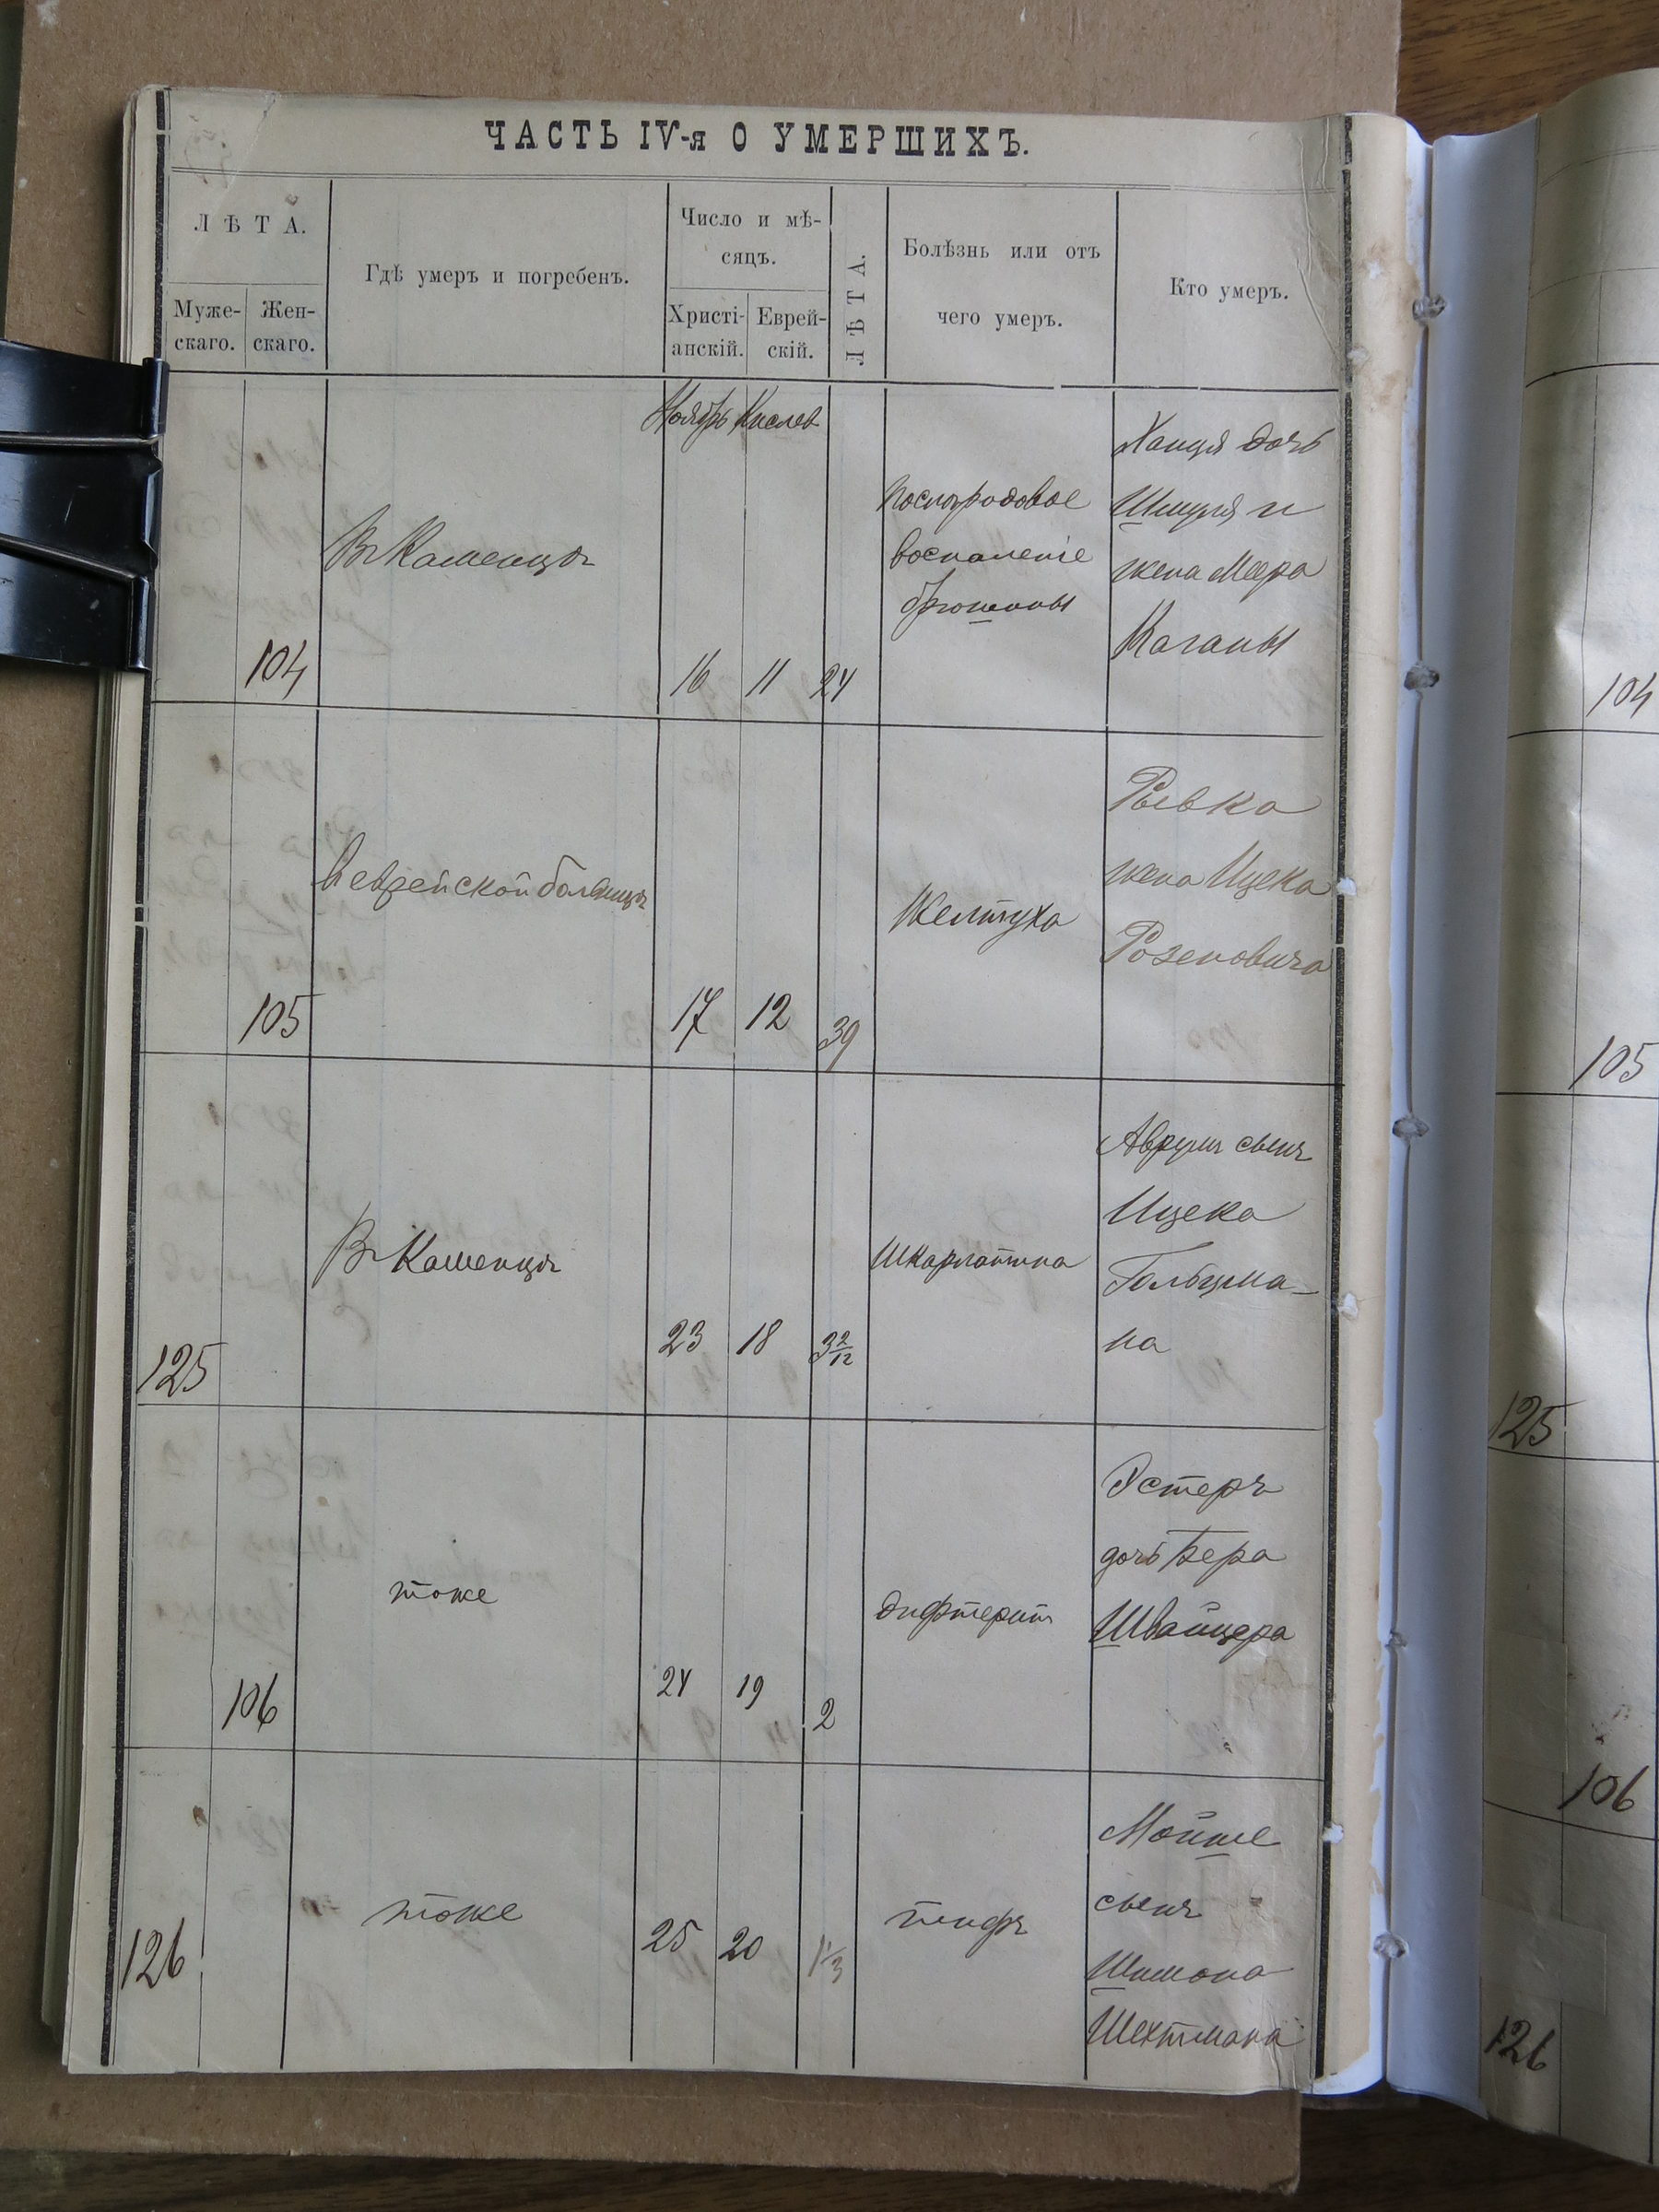 ЧАСТЬ IV-я О УМЕРШИХЪ.
ЛѢТА.
Муже-
скаго.
Жен-
скаго.
Гдѣ умеръ и погребенъ.
Число и мѣ-
сяцъ.
Христі-
анскій.
Еврей-
скій.
ЛѢТА.
Болѣзнь или отъ
чего умеръ.
Кто умеръ.
Ноябрь Кислев
104
Въ Каменцѣ
16 11 24
послѣродовое
воспаленіе
брюшины
Ханця дочь
Шмуля и
жена Меера
Каганы
104
105
в еврейской больницѣ
17 12 39
Желтуха
Рывка
жена Ицека
Розеновича
105
125
Въ Каменцѣ
23 18 3 2/12
шкарлатина
Аврумъ сынъ
Ицека
Гольцма-
на
125
106
тоже
24 19 2
дифтеритъ
Эстеръ
дочь Бера
Швайцера
106
126
тоже
25 20 1 1/3
тифъ
Мойше
сынъ
Шимона
Шехтмана
126